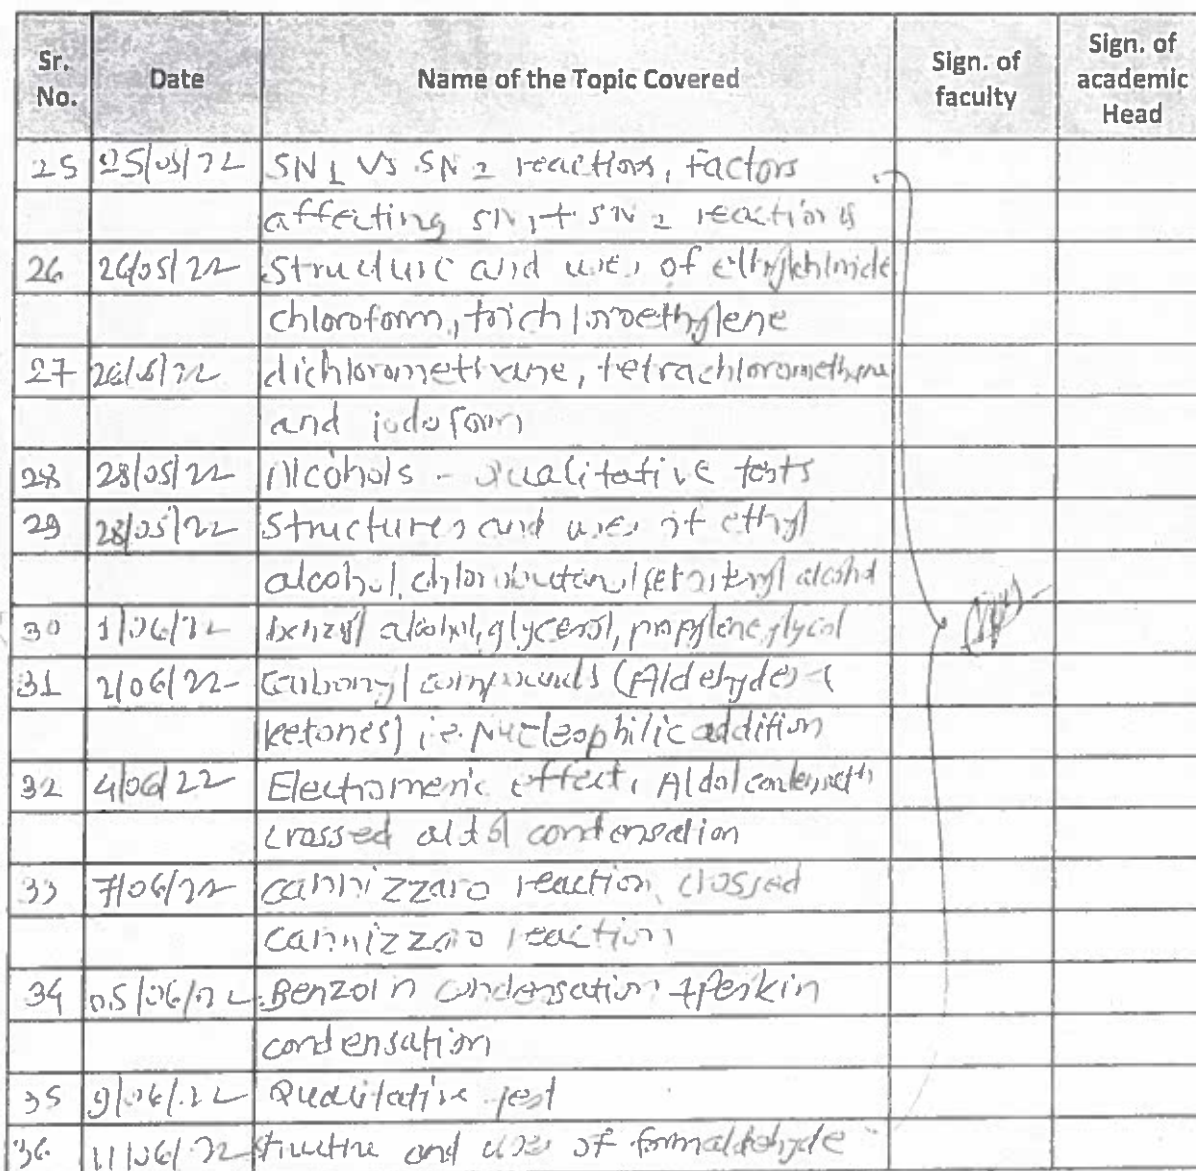 Sr. No. Date Name of the Topic Covered Sign. of faculty Sign. of academic Head
25 25/05/22 SN1 Vs SN2 reactions, Factors
affecting SN1 + SN2 reactions
26 26/05/22 Structure and uses of ethylchloride
chloroform, trichloroethylene
27 26/05/22 dichloromethane, tetrachloromethane
and iodoform
28 28/05/22 Alcohols - Qualitative tests
29 28/05/22 Structures and uses of ethyl
alcohol, chlorobutanol, alcohol
30 1/06/22 benzyl alcohol, glycerol, propylene glycol
31 2/06/22 Carbonyl compounds (Aldehydes +
ketones) i.e. Nucleophilic addition
32 4/06/22 Electromeric effect, Aldol condensation
crossed aldol condensation
33 7/06/22 cannizzaro reaction, crossed
cannizzaro reaction
34 Benzoin condensation + Perkin
condensation
35 9/06/22 Qualitative test
36 11/06/22 structure and uses of formaldehyde